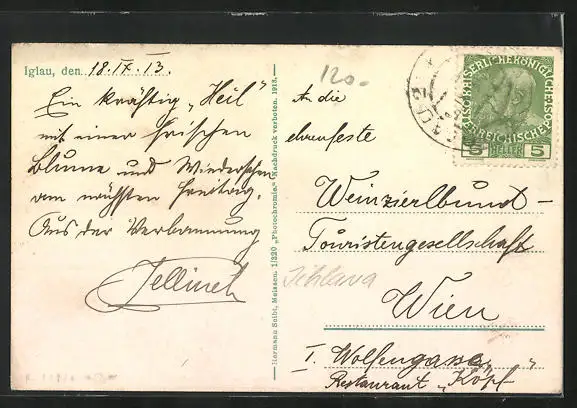 Iglau, den 18.IX.13.
Ein kräftig "Heil"
mit einer frischen
Blume und Wiedersehen
am nächsten Freitag.
Aus der Verbannung
Jellinek
Hermann Seibt, Meissen. 1/320 „Photochromie.“ Nachdruck verboten. 1913.
120-
An die
ehrenfeste
Weinzierlbund-
Touristengesellschaft
Jihlava
Wien
I. Wolfengasse,
Restaurant „Kopf“
KAISERLICHE KÖNIGLICHE ÖSTERREICHISCHE
5 HELLER 5